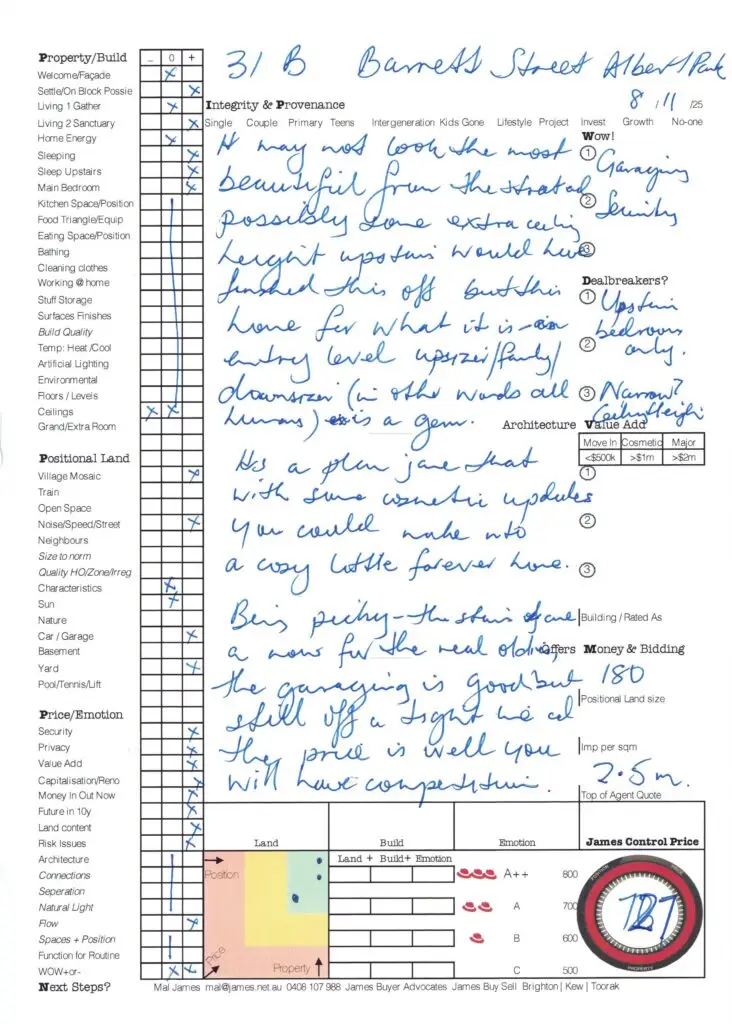 31 B Barrett Street Albert Park
8 / 11 /25
Property/Build
_ 0 +
Welcome/Façade
Settle/On Block Possie
Living 1 Gather
Living 2 Sanctuary
Home Energy
Sleeping
Sleep Upstairs
Main Bedroom
Kitchen Space/Position
Food Triangle/Equip
Eating Space/Position
Bathing
Cleaning clothes
Working @ home
Stuff Storage
Surfaces Finishes
Build Quality
Temp: Heat /Cool
Artificial Lighting
Environmental
Floors / Levels
Ceilings
Grand/Extra Room
Positional Land
Village Mosaic
Train
Open Space
Noise/Speed/Street
Neighbours
Size to norm
Quality HO/Zone/Irreg
Characteristics
Sun
Nature
Car / Garage
Basement
Yard
Pool/Tennis/Lift
Price/Emotion
Security
Privacy
Value Add
Capitalisation/Reno
Money In Out Now
Future in 10y
Land content
Risk Issues
Architecture
Connections
Seperation
Natural Light
Flow
Spaces + Position
Function for Routine
WOW+or-
Next Steps?
Integrity & Provenance
Single Couple Primary Teens Intergeneration Kids Gone Lifestyle Project Invest Growth No-one
It may not look the most
beautiful from the street and
possibly some extra ceiling
height upstairs would have
finished this off but this
home for what it is - an
entry level upsizer/family/
downsizer (in other words all
humans) is a gem.
Its a plain jane that
with some cosmetic updates
you could make into
a cosy little forever home.
Being picky - the stairs are
a now for the real oldies
the garaging is good but
still off a tight lane and
the price is well you
will have competition.
Wow!
1 Garaging
2 Serenity
3
Dealbreakers?
1 Upstairs
bedrooms
2 only.
3 Narrow?
Ceiling Height
Architecture Value Add
Move In Cosmetic Major
<$500k >$1m >$2m
1
2
3
Building / Rated As
Offers Money & Bidding
180
Positional Land size
Imp per sqm
2.5m.
Top of Agent Quote
Land Build Emotion James Control Price
Position
Price
Property
Land + Build+ Emotion
A++ 800
A 700
B 600
C 500
POSITION
PROPERTY
Mal James mal@james.net.au 0408 107 988 James Buyer Advocates James Buy Sell Brighton | Kew | Toorak